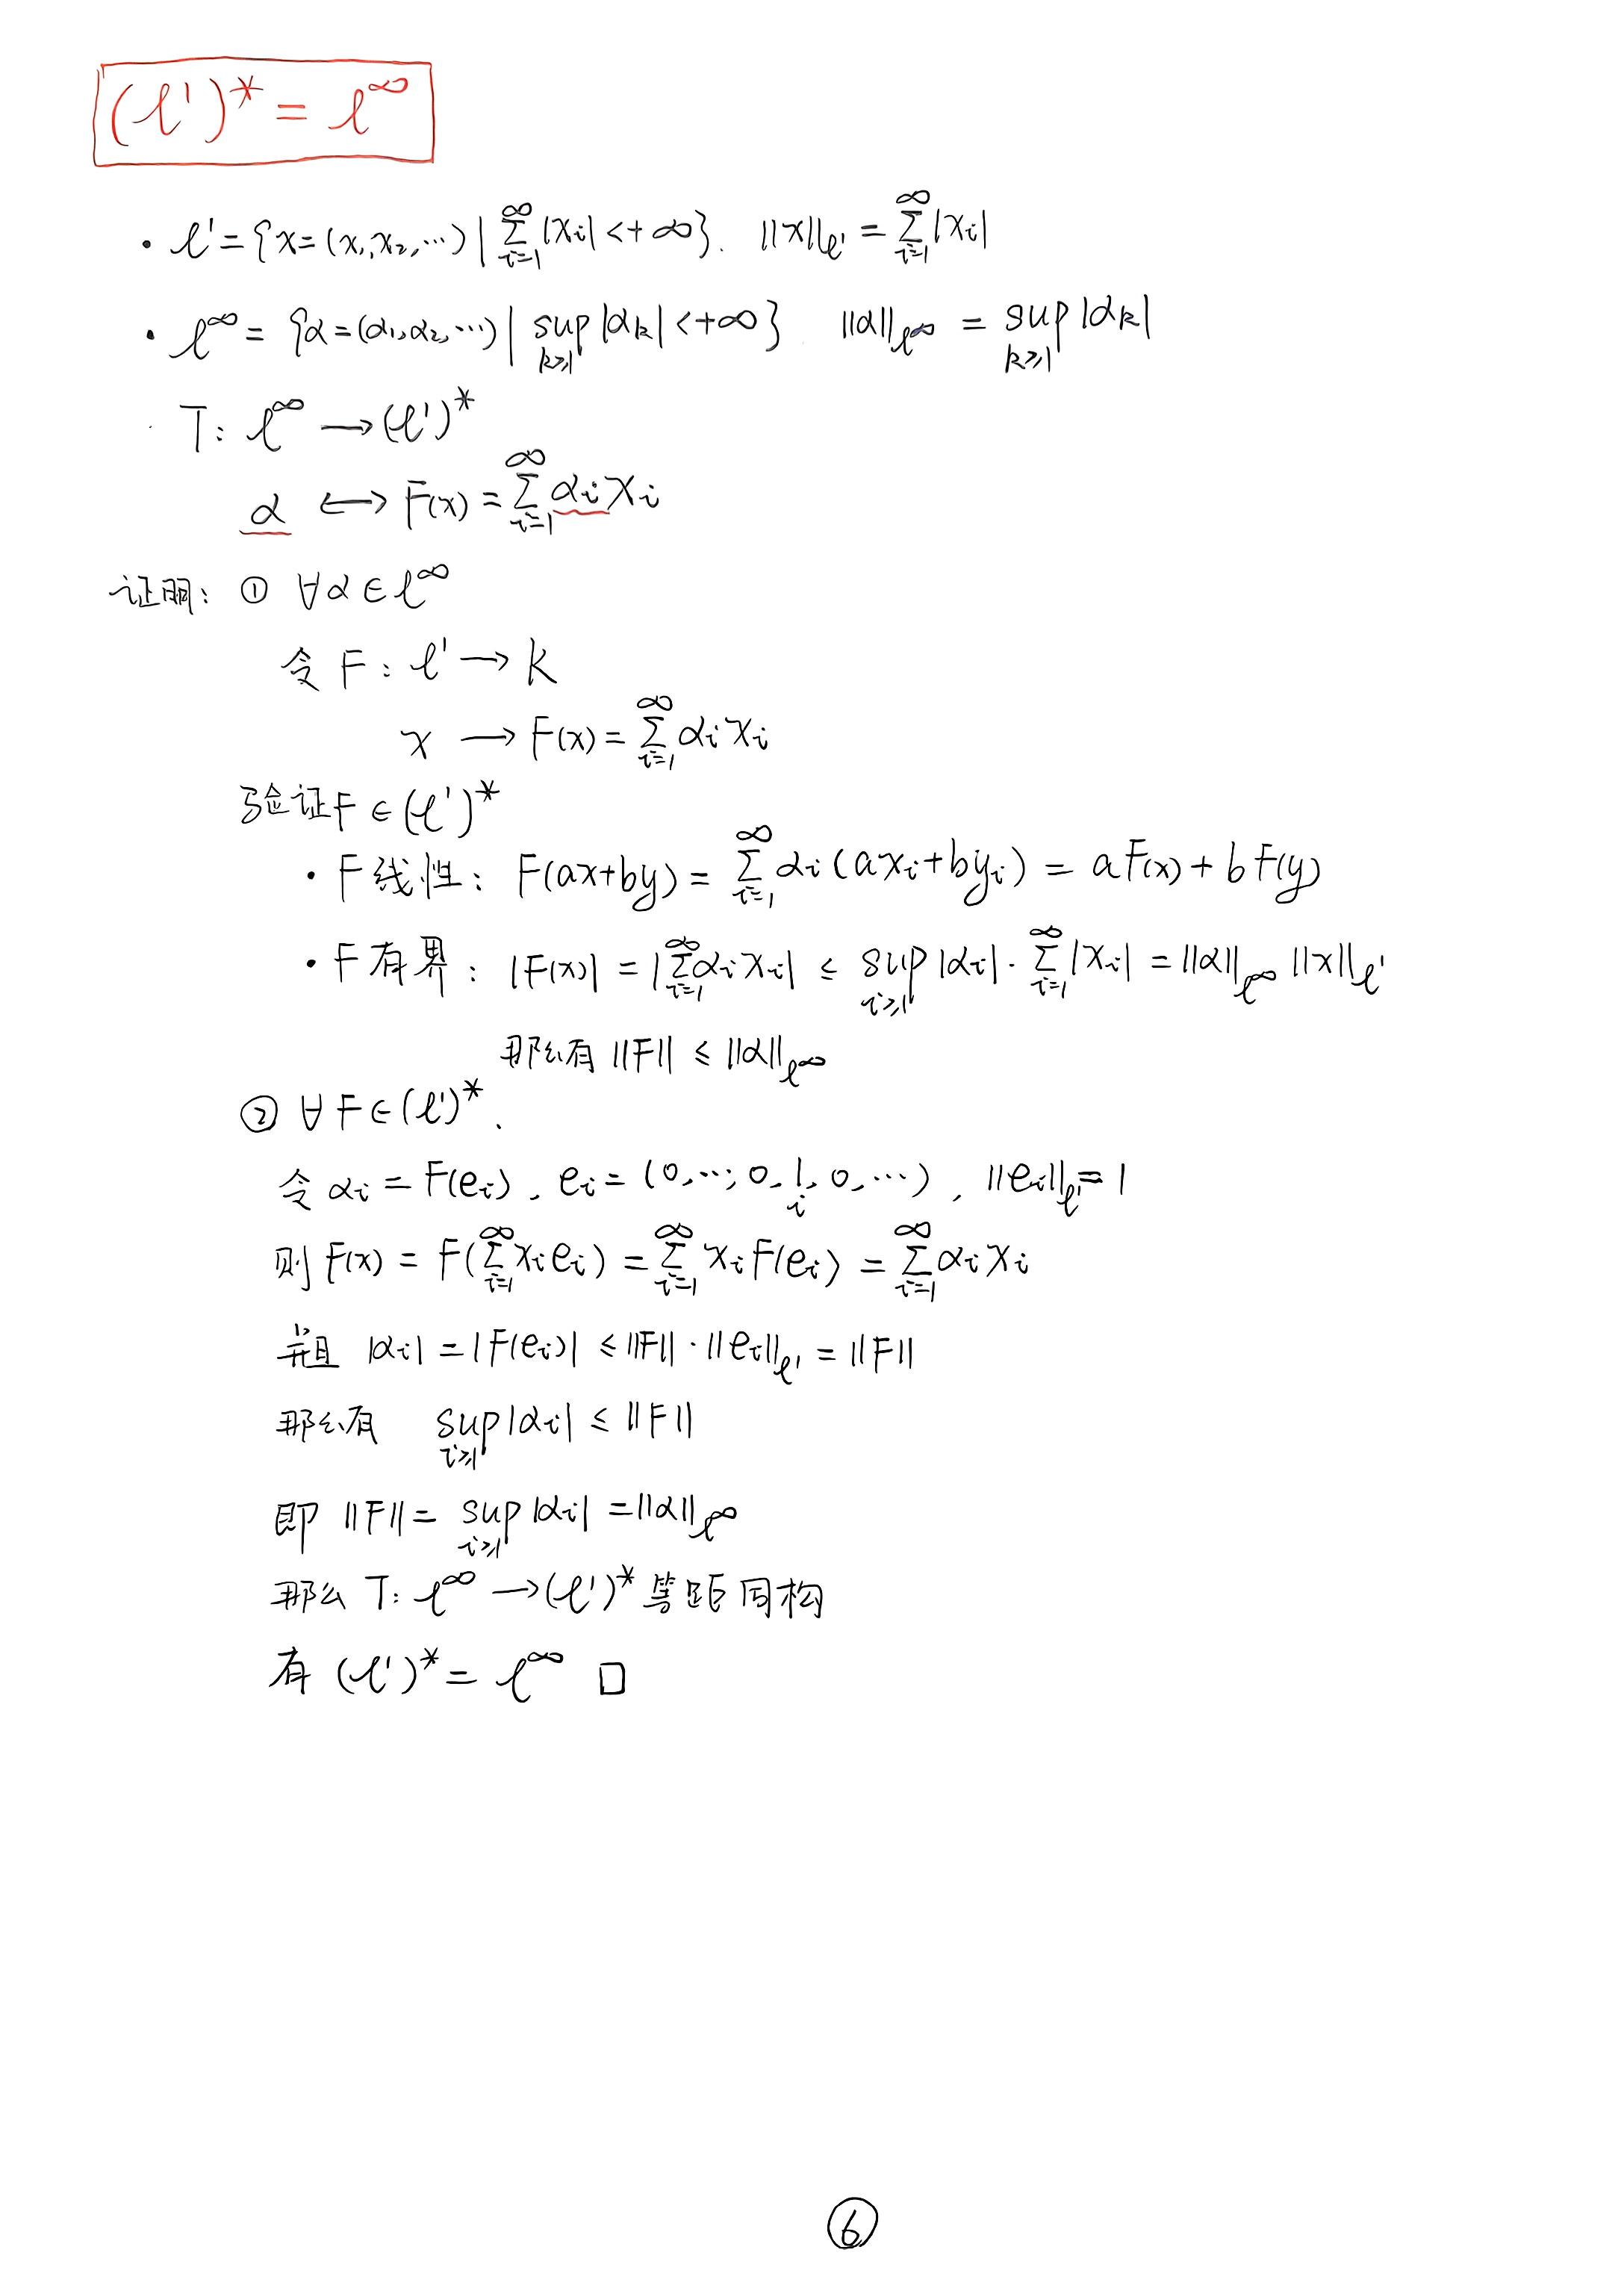 (ℓ¹)* = ℓ^∞
· ℓ¹ = {x = (x₁, x₂, ···) | ∑_{i=1}^∞ |x_i| < +∞}. ||x||_{ℓ¹} = ∑_{i=1}^∞ |x_i|
· ℓ^∞ = {α = (α₁, α₂, ···) | sup_{k≥1} |α_k| < +∞} ||α||_{ℓ^∞} = sup_{k≥1} |α_k|
· T: ℓ^∞ → (ℓ¹)*
α ↔ F(x) = ∑_{i=1}^∞ α_i x_i
证明: ① ∀ α ∈ ℓ^∞
令 F: ℓ¹ → k
x → F(x) = ∑_{i=1}^∞ α_i x_i
验证 F ∈ (ℓ¹)*
· F 线性: F(ax+by) = ∑_{i=1}^∞ α_i (ax_i + by_i) = aF(x) + bF(y)
· F 有界: |F(x)| = |∑_{i=1}^∞ α_i x_i| ≤ sup_{i≥1} |α_i| · ∑_{i=1}^∞ |x_i| = ||α||_{ℓ^∞} ||x||_{ℓ¹}
那么有 ||F|| ≤ ||α||_{ℓ^∞}
② ∀ F ∈ (ℓ¹)*.
令 α_i = F(e_i), e_i = (0, ···, 0, 1_i, 0, ···), ||e_i||_{ℓ¹} = 1
则 F(x) = F(∑_{i=1}^∞ x_i e_i) = ∑_{i=1}^∞ x_i F(e_i) = ∑_{i=1}^∞ α_i x_i
并且 |α_i| = |F(e_i)| ≤ ||F|| · ||e_i||_{ℓ¹} = ||F||
那么有 sup_{i≥1} |α_i| ≤ ||F||
即 ||F|| = sup_{i≥1} |α_i| = ||α||_{ℓ^∞}
那么 T: ℓ^∞ → (ℓ¹)* 等距同构
有 (ℓ¹)* = ℓ^∞ □
⑥